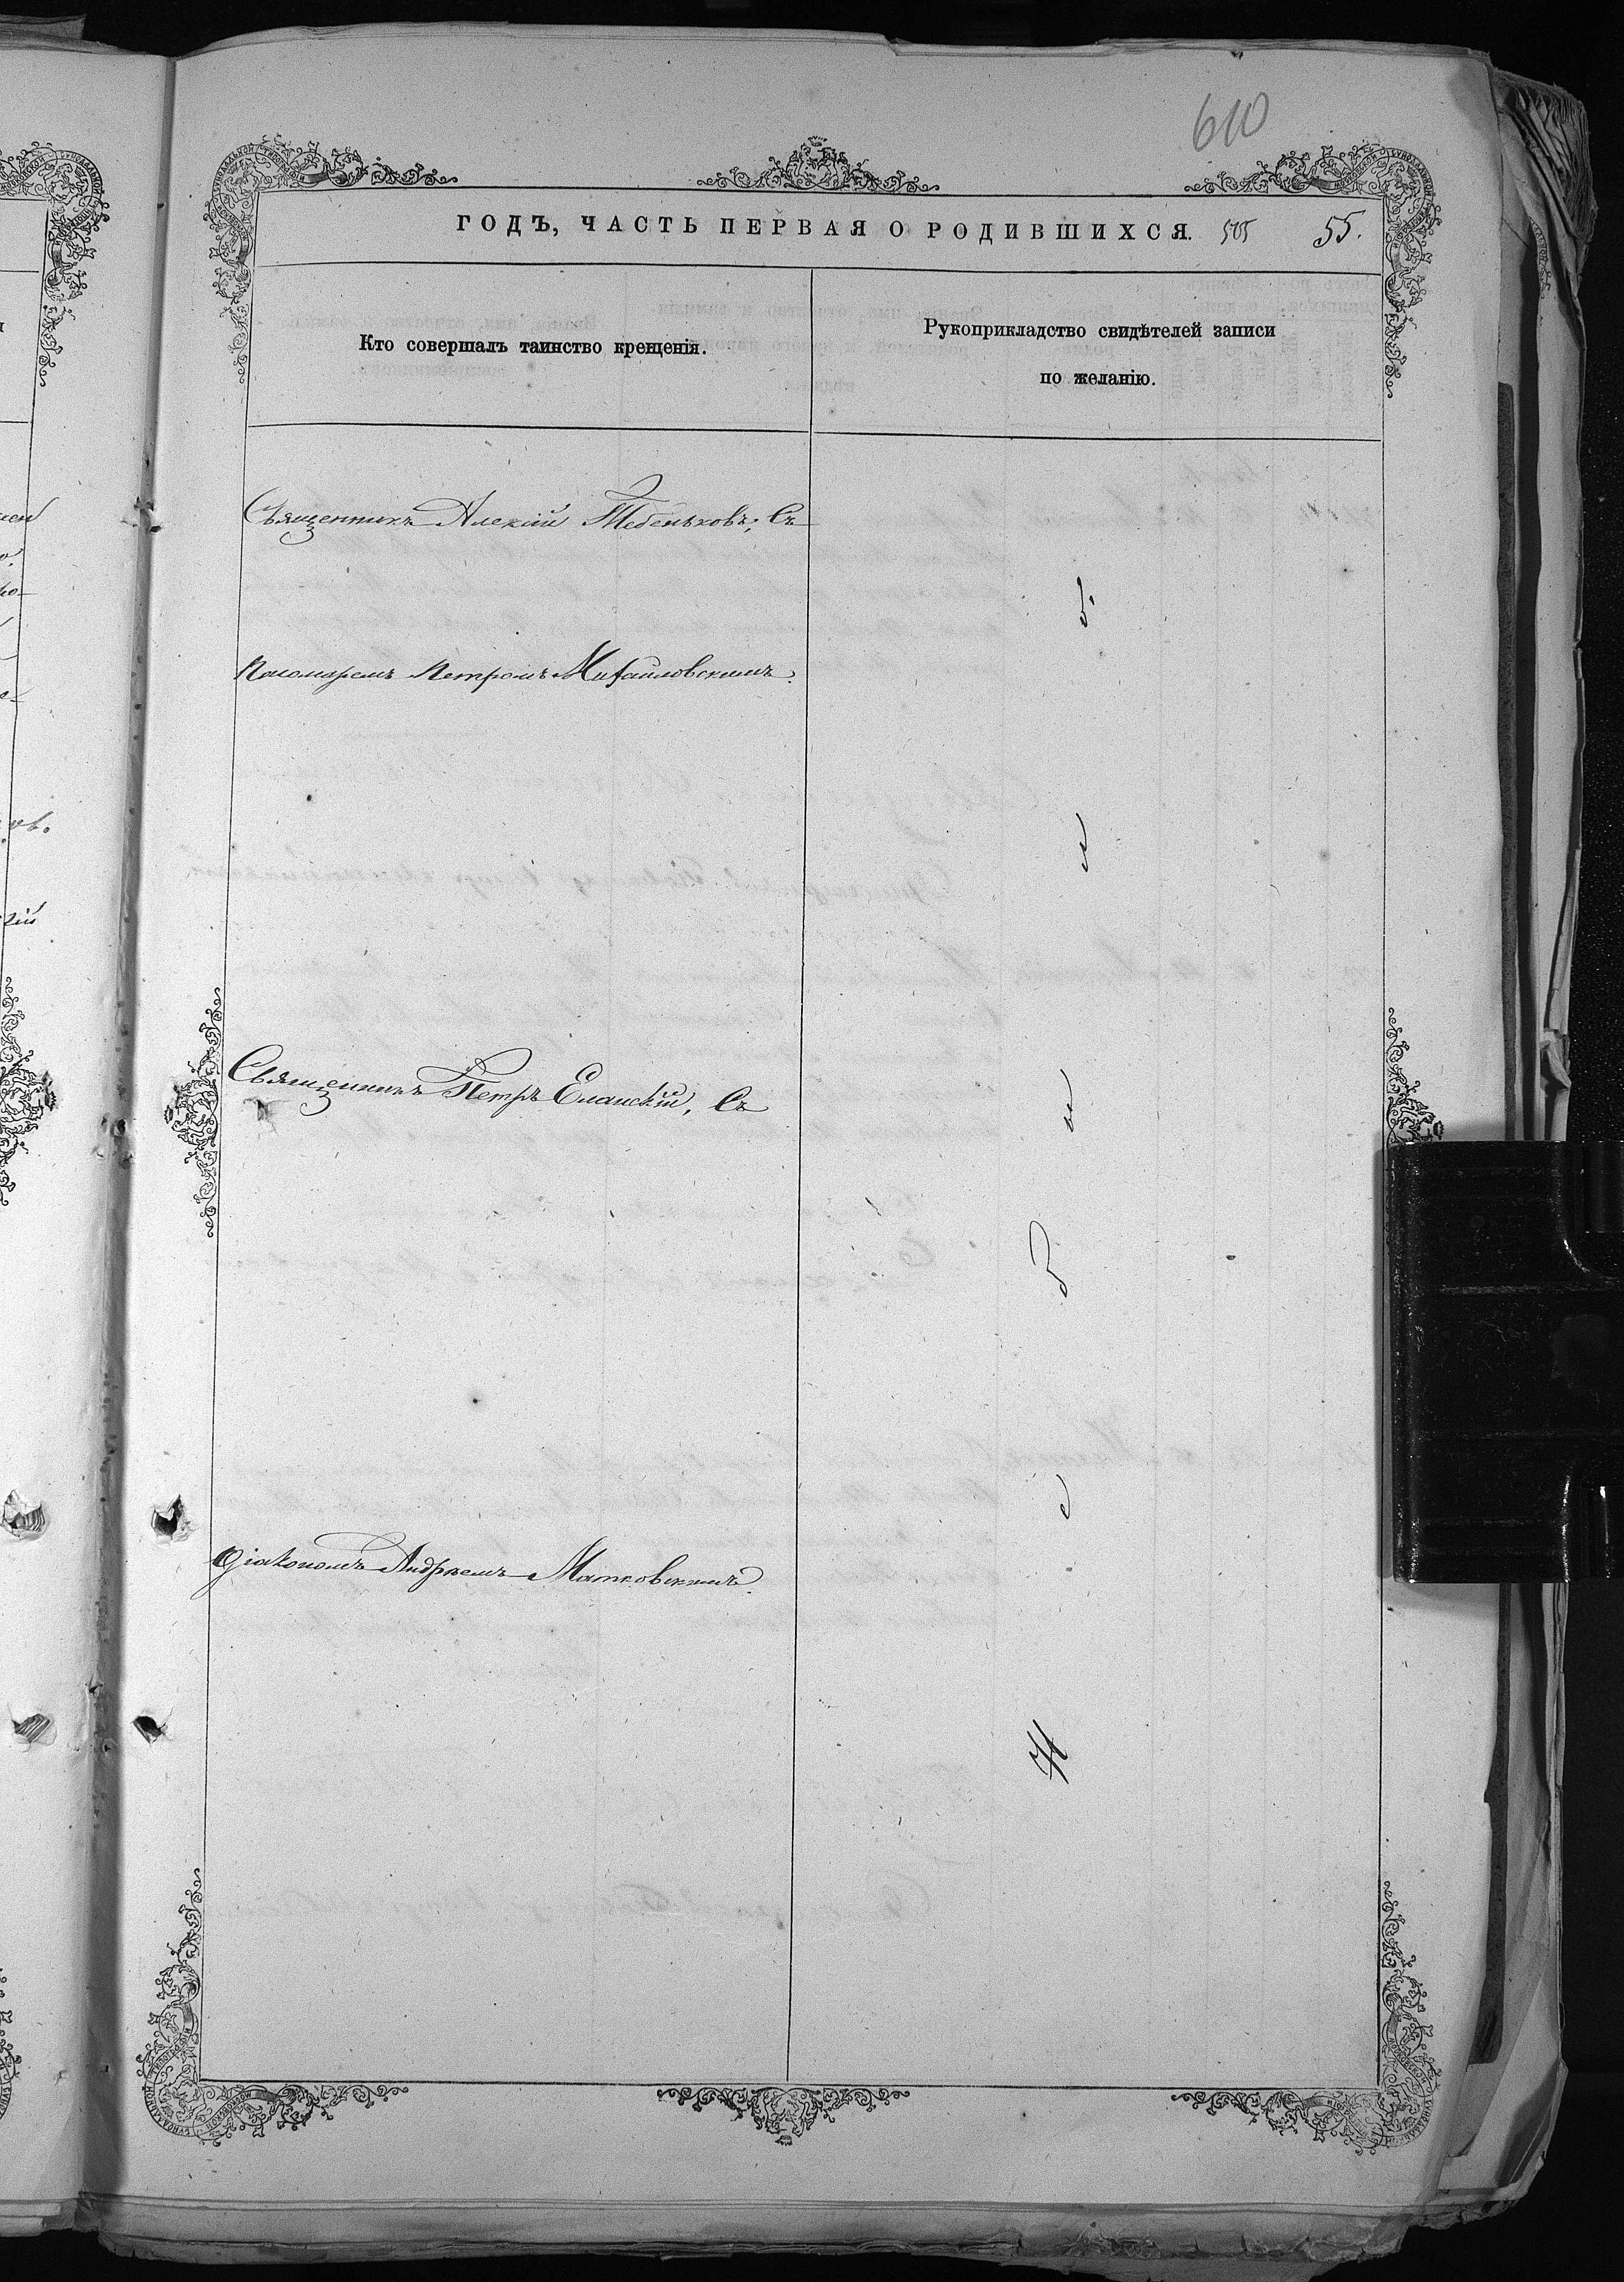 610
ГОДЪ, ЧАСТЬ ПЕРВАЯ О РОДИВШИХСЯ. 505 55.
Кто совершалъ таинство крещенія.
Рукоприкладство свидѣтелей записи
по желанію.
Священникъ Алексій Тебеньковъ, Съ
Пономаремъ Петромъ Михайловскимъ.
Священникъ Петръ Еланскій, Съ
Діакономъ Андреемъ Матковскимъ.